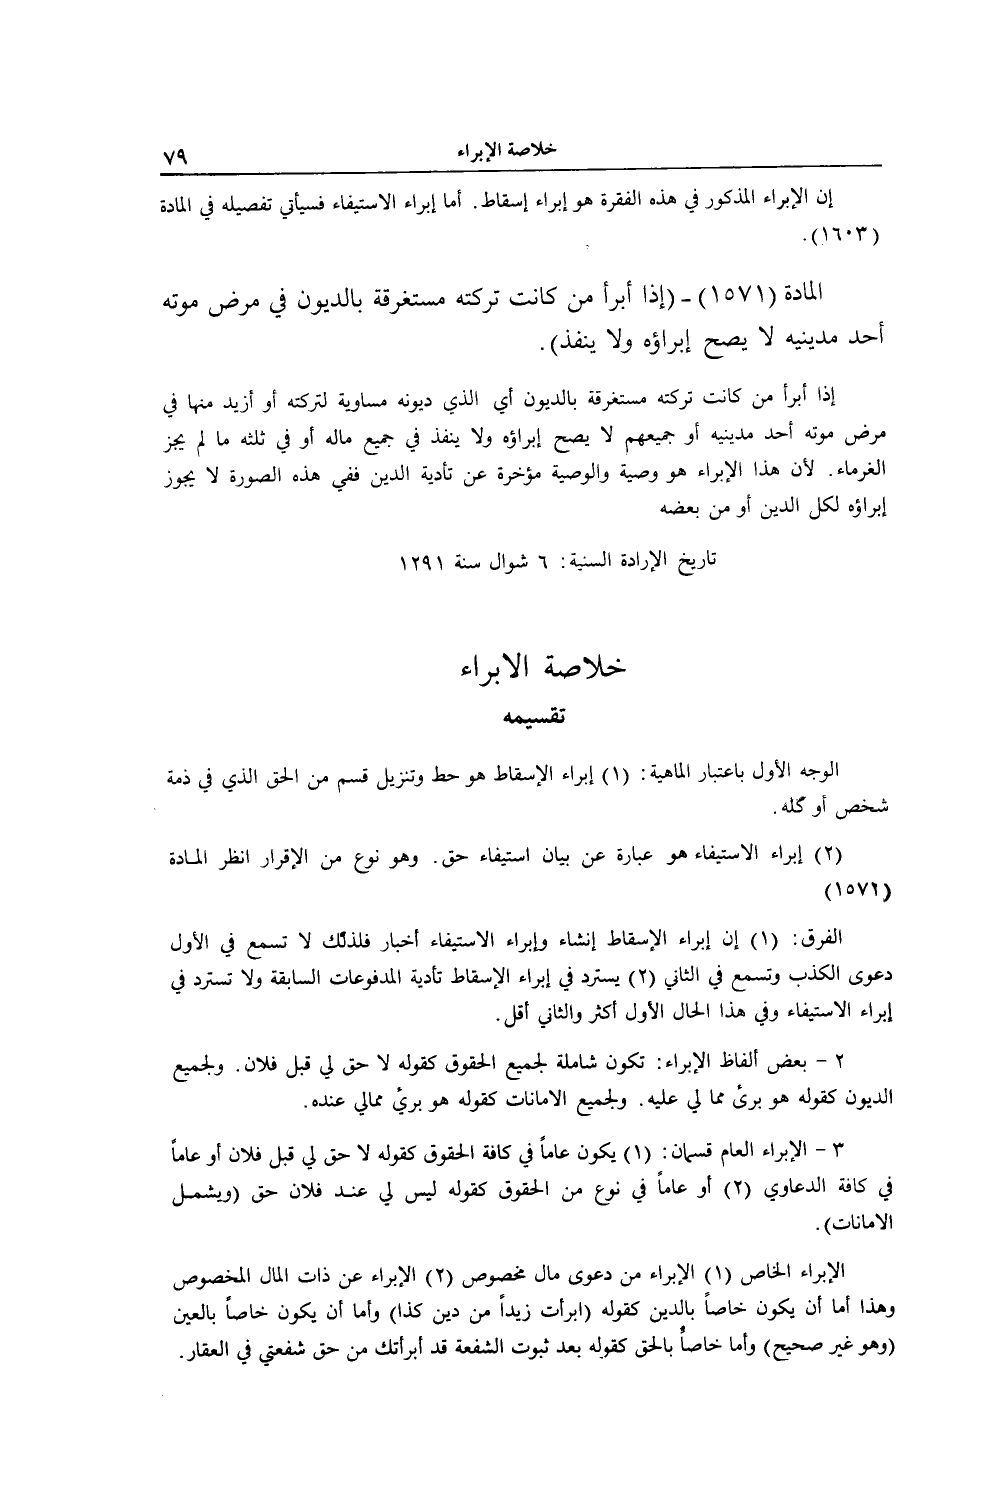 خلاصة الإبراء ٧٩
إن الإبراء المذكور في هذه الفقرة هو إبراء إسقاط. أما إبراء الاستيفاء فسيأتي تفصيله في المادة
(١٦٠٣).
المادة (١٥٧١) ـ (إذا أبرأ من كانت تركته مستغرقة بالديون في مرض موته
أحد مدينيه لا يصح إبراؤه ولا ينفذ).
إذا أبرأ من كانت تركته مستغرقة بالديون أي الذي ديونه مساوية لتركته أو أزيد منها في
مرض موته أحد مدينيه أو جميعهم لا يصح إبراؤه ولا ينفذ في جميع ماله أو في ثلثه ما لم يجز
الغرماء. لأن هذا الإبراء هو وصية والوصية مؤخرة عن تأدية الدين ففي هذه الصورة لا يجوز
إبراؤه لكل الدين أو من بعضه
تاريخ الإرادة السنية: ٦ شوال سنة ١٢٩١
خلاصة الابراء
تقسيمه
الوجه الأول باعتبار الماهية: (١) إبراء الإسقاط هو حط وتنزيل قسم من الحق الذي في ذمة
شخص أو كله.
(٢) إبراء الاستيفاء هو عبارة عن بيان استيفاء حق. وهو نوع من الإقرار انظر المادة
(١٥٧٦)
الفرق: (١) إن إبراء الإسقاط إنشاء وإبراء الاستيفاء أخبار فلذلك لا تسمع في الأول
دعوى الكذب وتسمع في الثاني (٢) يسترد في إبراء الإسقاط تأدية المدفوعات السابقة ولا تسترد في
إبراء الاستيفاء وفي هذا الحال الأول أكثر والثاني أقل.
٢ - بعض ألفاظ الإبراء: تكون شاملة لجميع الحقوق كقوله لا حق لي قبل فلان. ولجميع
الديون كقوله هو برئ مما لي عليه. ولجميع الامانات كقوله هو برئ ممالي عنده.
٣ - الإبراء العام قسمان: (١) يكون عاماً في كافة الحقوق كقوله لا حق لي قبل فلان أو عاماً
في كافة الدعاوي (٢) أو عاماً في نوع من الحقوق كقوله ليس لي عند فلان حق (ويشمل
الامانات).
الإبراء الخاص (١) الإبراء من دعوى مال مخصوص (٢) الإبراء عن ذات المال المخصوص
وهذا أما أن يكون خاصاً بالدين كقوله (ابرأت زيداً من دين كذا) وأما أن يكون خاصاً بالعين
(وهو غير صحيح) وأما خاصاً بالحق كقوله بعد ثبوت الشفعة قد أبرأتك من حق شفعتي في العقار.